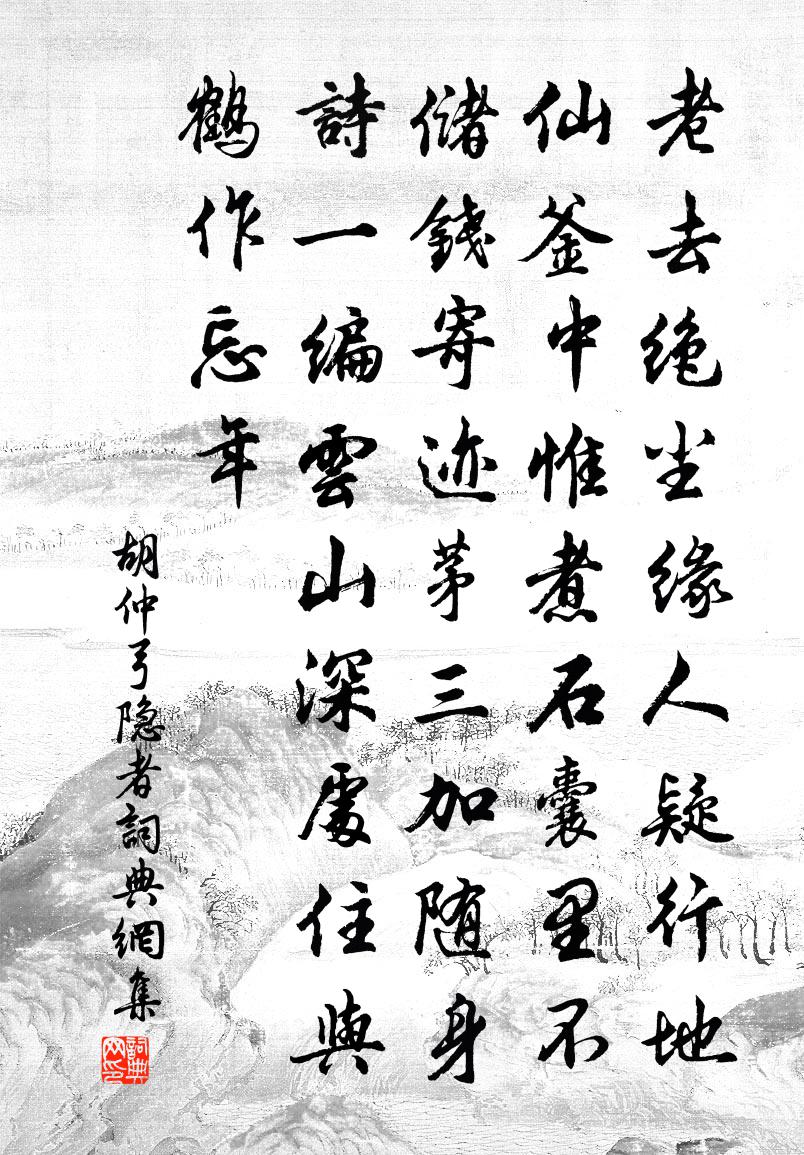 老去绝尘缘人疑行地
仙釜中惟煮石囊里不
储錢寄迹茅三加随身
詩一编雲山深處住與
鶴作忘年
胡仲弓隐者詞典網集
詞典网印